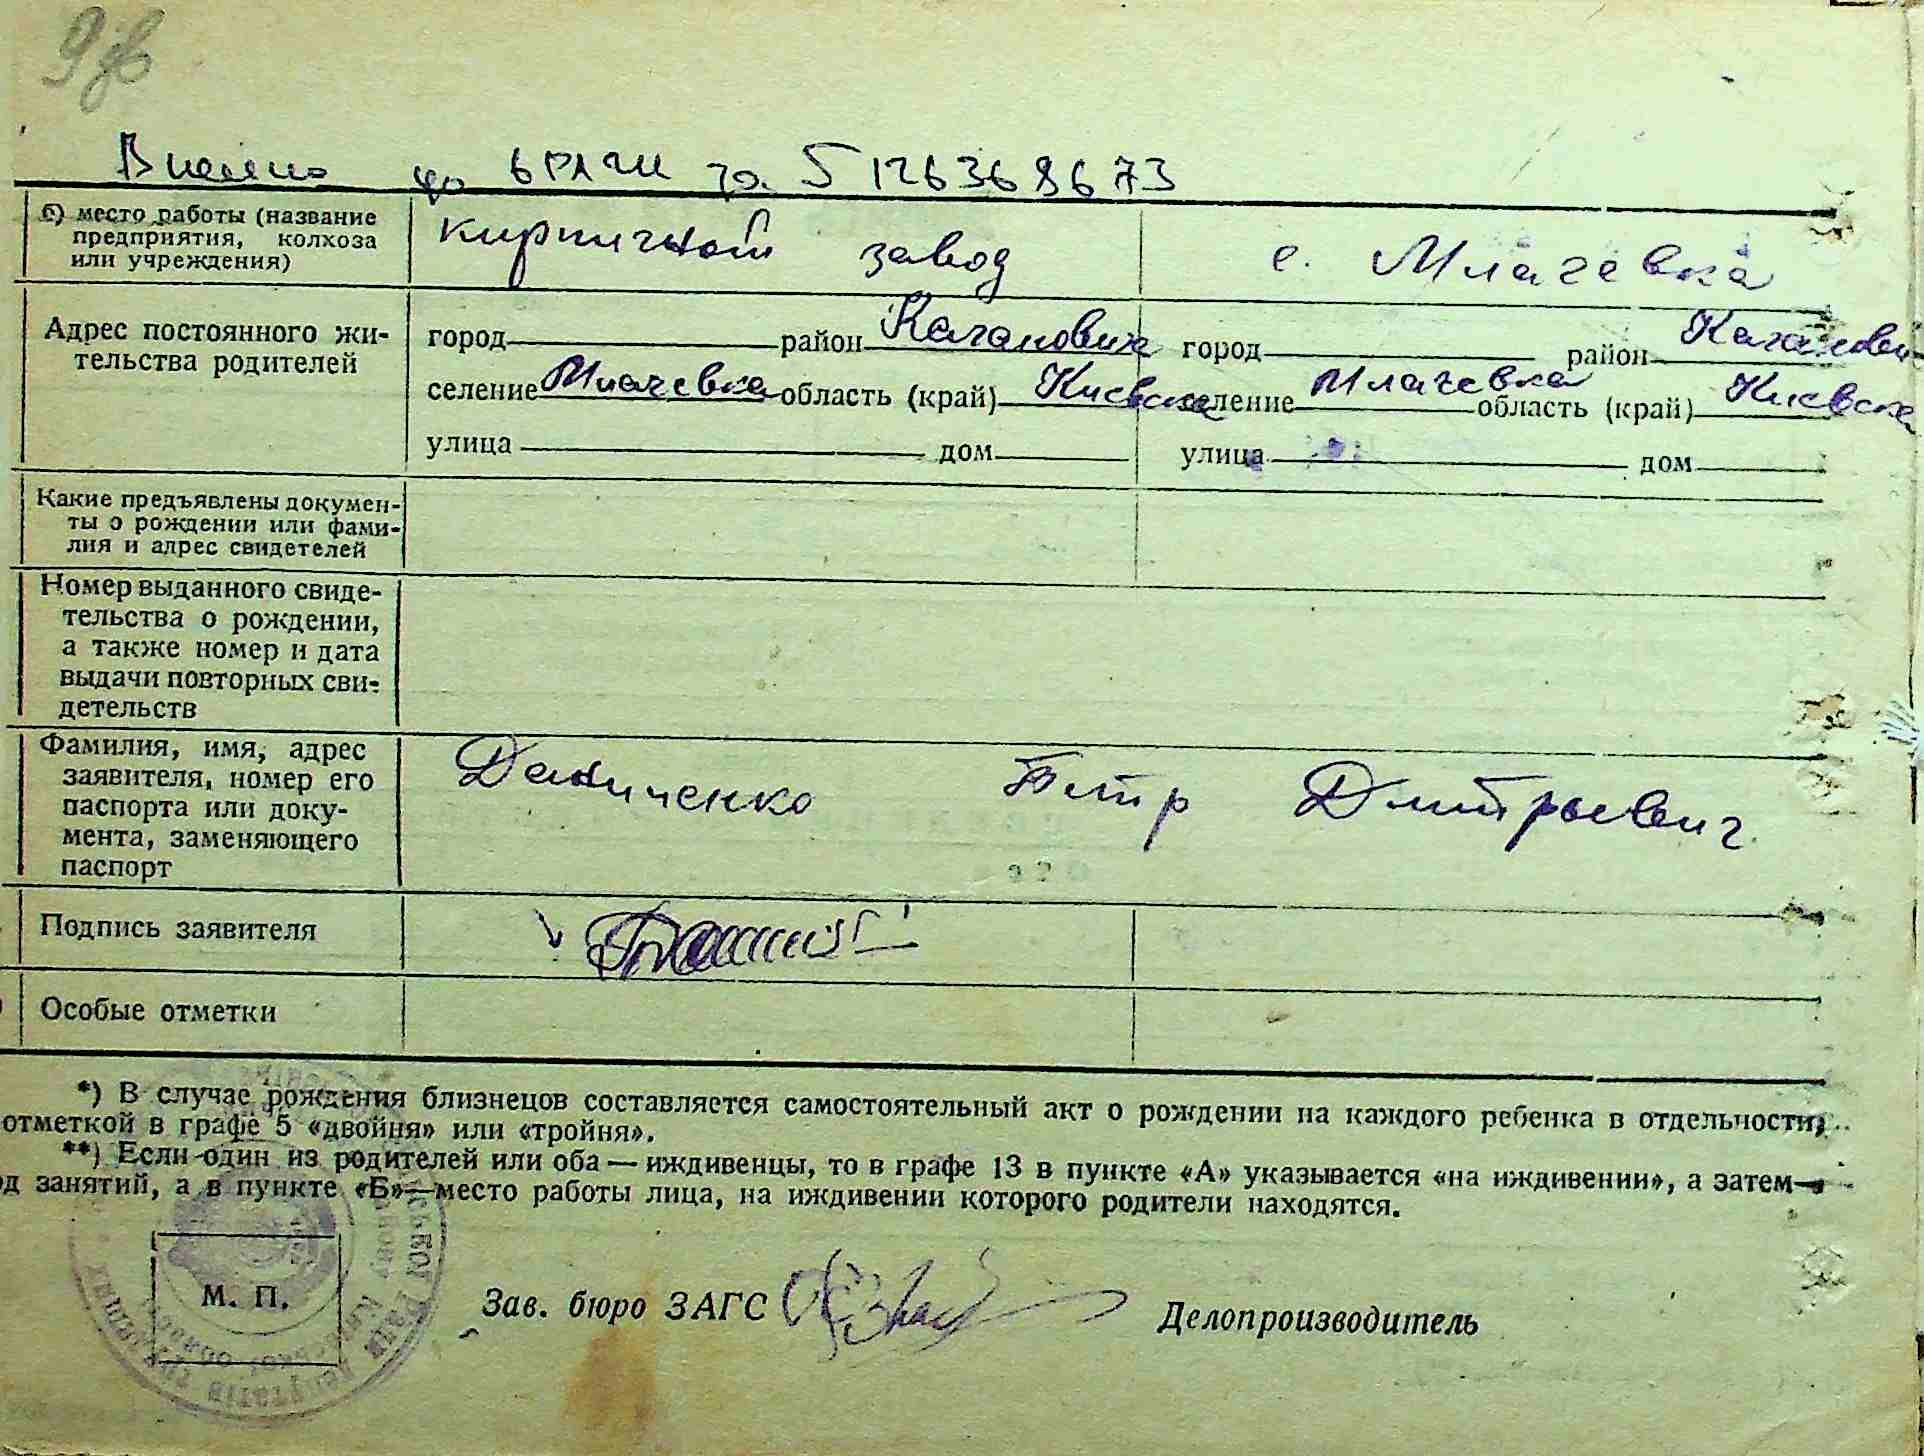 9зв
Внесено до ДРАЦС за 5 1263698673
б) место работы (название предприятия, колхоза или учреждения)
кирпичный завод
с. Млачевка
Адрес постоянного жительства родителей
город район Каганович
селение Млачевка область (край) Киевская
улица дом
город район Каганович
селение Млачевка область (край) Киевская
улица дом
Какие предъявлены документы о рождении или фамилия и адрес свидетелей
Номер выданного свидетельства о рождении, а также номер и дата выдачи повторных свидетельств
Фамилия, имя, адрес заявителя, номер его паспорта или документа, заменяющего паспорт
Даниченко Петр Дмитрьевич
Подпись заявителя
Особые отметки
*) В случае рождения близнецов составляется самостоятельный акт о рождении на каждого ребенка в отдельности,
отметкой в графе 5 «двойня» или «тройня».
**) Если один из родителей или оба — иждивенцы, то в графе 13 в пункте «А» указывается «на иждивении», а затем—
д занятий, а в пункте «Б»—место работы лица, на иждивении которого родители находятся.
М. П.
Зав. бюро ЗАГС
Делопроизводитель